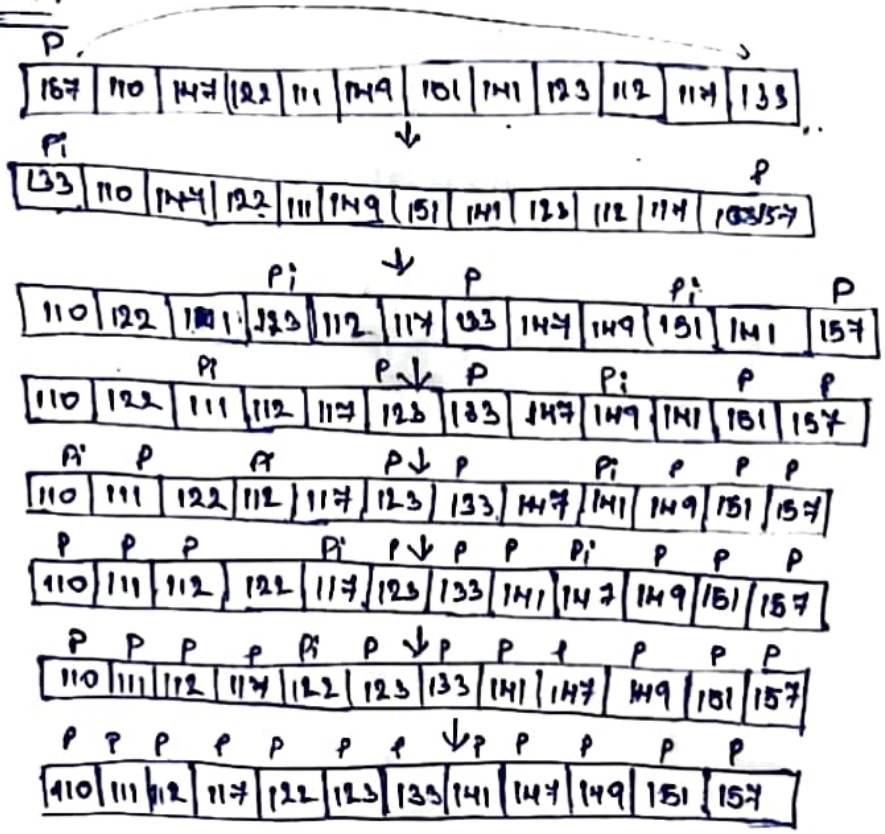 P
157 110 147 122 111 149 151 141 123 112 117 133
Pi P
133 110 147 122 111 149 151 141 123 112 117 157
Pi P Pi P
110 122 111 123 112 117 133 147 149 151 141 157
Pi P P Pi P P
110 122 111 112 117 123 133 147 149 141 151 157
Pi P Pi P P Pi P P P
110 111 122 112 117 123 133 147 141 149 151 157
P P P Pi P P P Pi P P P
110 111 112 122 117 123 133 141 147 149 151 157
P P P P Pi P P P P P P P
110 111 112 117 122 123 133 141 147 149 151 157
P P P P P P P P P P P P
110 111 112 117 122 123 133 141 147 149 151 157